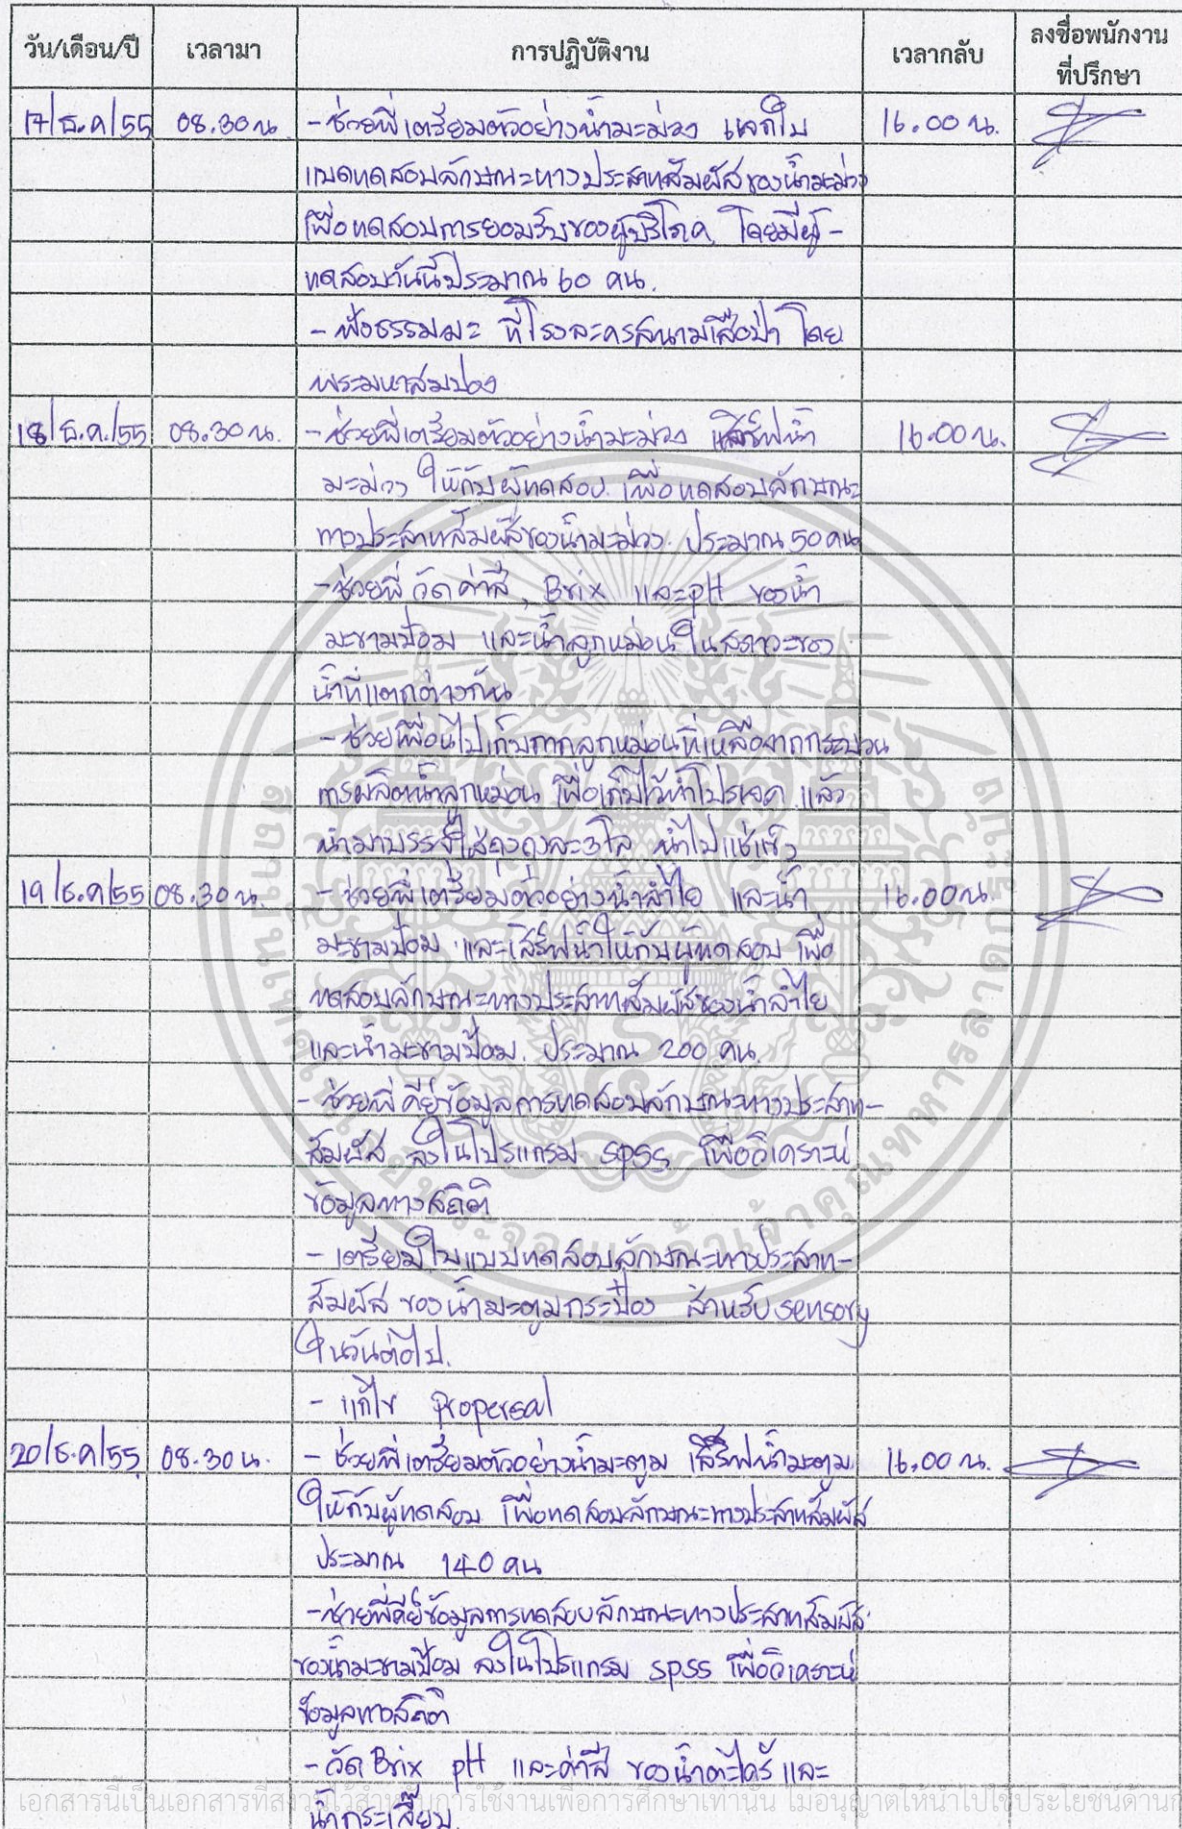 วัน/เดือน/ปี เวลามา การปฏิบัติงาน เวลากลับ ลงชื่อพนักงาน
ที่ปรึกษา
17/ธ.ค/55 08.30 น. - ช่วยพี่เตรียมตัวอย่างน้ำมะม่วง แจกใบ 16.00 น.
แบดทดสอบลักษณะทางประสาทสัมผัสของน้ำมะม่วง
เพื่อทดสอบการยอมรับของผู้บริโภค โดยมีผู้-
ทดสอบวันนี้ประมาณ 60 คน.
- ฟังธรรมมะ ที่โรงละครสนามเสือป่า โดย
พระมหาสมปอง
18/ธ.ค./55 08.30 น. - ช่วยพี่เตรียมตัวอย่างน้ำมะม่วง เสิร์ฟน้ำ 16.00 น.
มะม่วง ให้กับผู้ทดสอบ เพื่อทดสอบลักษณะ
ทางประสาทสัมผัสของน้ำมะม่วง ประมาณ 50 คน
- ช่วยพี่ วัดค่าสี, Brix และ pH ของน้ำ
มะขามป้อม และน้ำลูกหม่อน ในสภาวะของ
น้ำที่แตกต่างกัน
- ช่วยเพื่อนไปเก็บกากลูกหม่อนที่เหลือจากกระบวน
การผลิตน้ำลูกหม่อน เพื่อเก็บไว้ทำโปรเจค แล้ว
นำมาบรรจุใส่ถุงถุงละ 3 โล นำไปแช่แข็ง
19/ธ.ค/55 08.30 น. - ช่วยพี่เตรียมตัวอย่างน้ำลำไย และน้ำ 16.00 น.
มะขามป้อม และเสิร์ฟน้ำให้กับผู้ทดสอบ เพื่อ
ทดสอบลักษณะทางประสาทสัมผัสของน้ำลำไย
และน้ำมะขามป้อม. ประมาณ 200 คน.
- ช่วยพี่ คีย์ข้อมูลการทดสอบลักษณะทางประสาท-
สัมผัส ลงในโปรแกรม SPSS เพื่อวิเคราะห์
ข้อมูลทางสถิติ
- เตรียมใบแบบทดสอบลักษณะทางประสาท-
สัมผัส ของน้ำมะตูมกระป๋อง สำหรับ sensory
ในวันต่อไป.
- แก้ไข Propersal
20/ธ.ค/55 08.30 น. - ช่วยพี่เตรียมตัวอย่างน้ำมะตูม เสิร์ฟน้ำมะตูม 16.00 น.
ให้กับผู้ทดสอบ เพื่อทดสอบลักษณะทางประสาทสัมผัส
ประมาณ 140 คน
- ช่วยพี่คีย์ข้อมูลการทดสอบลักษณะทางประสาทสัมผัส
ของน้ำมะขามป้อม ลงในโปรแกรม SPSS เพื่อวิเคราะห์
ข้อมูลทางสถิติ
- วัด Brix pH และค่าสี ของน้ำตะไคร้ และ
น้ำกระเจี๊ยบ.
เอกสารนี้เป็นเอกสารที่สงวนไว้สำหรับการใช้งานเพื่อการศึกษาเท่านั้น ไม่อนุญาตให้นำไปใช้ประโยชน์ด้าน
สถาบันเทคโนโลยีพระจอมเกล้าเจ้าคุณทหารลาดกระบัง